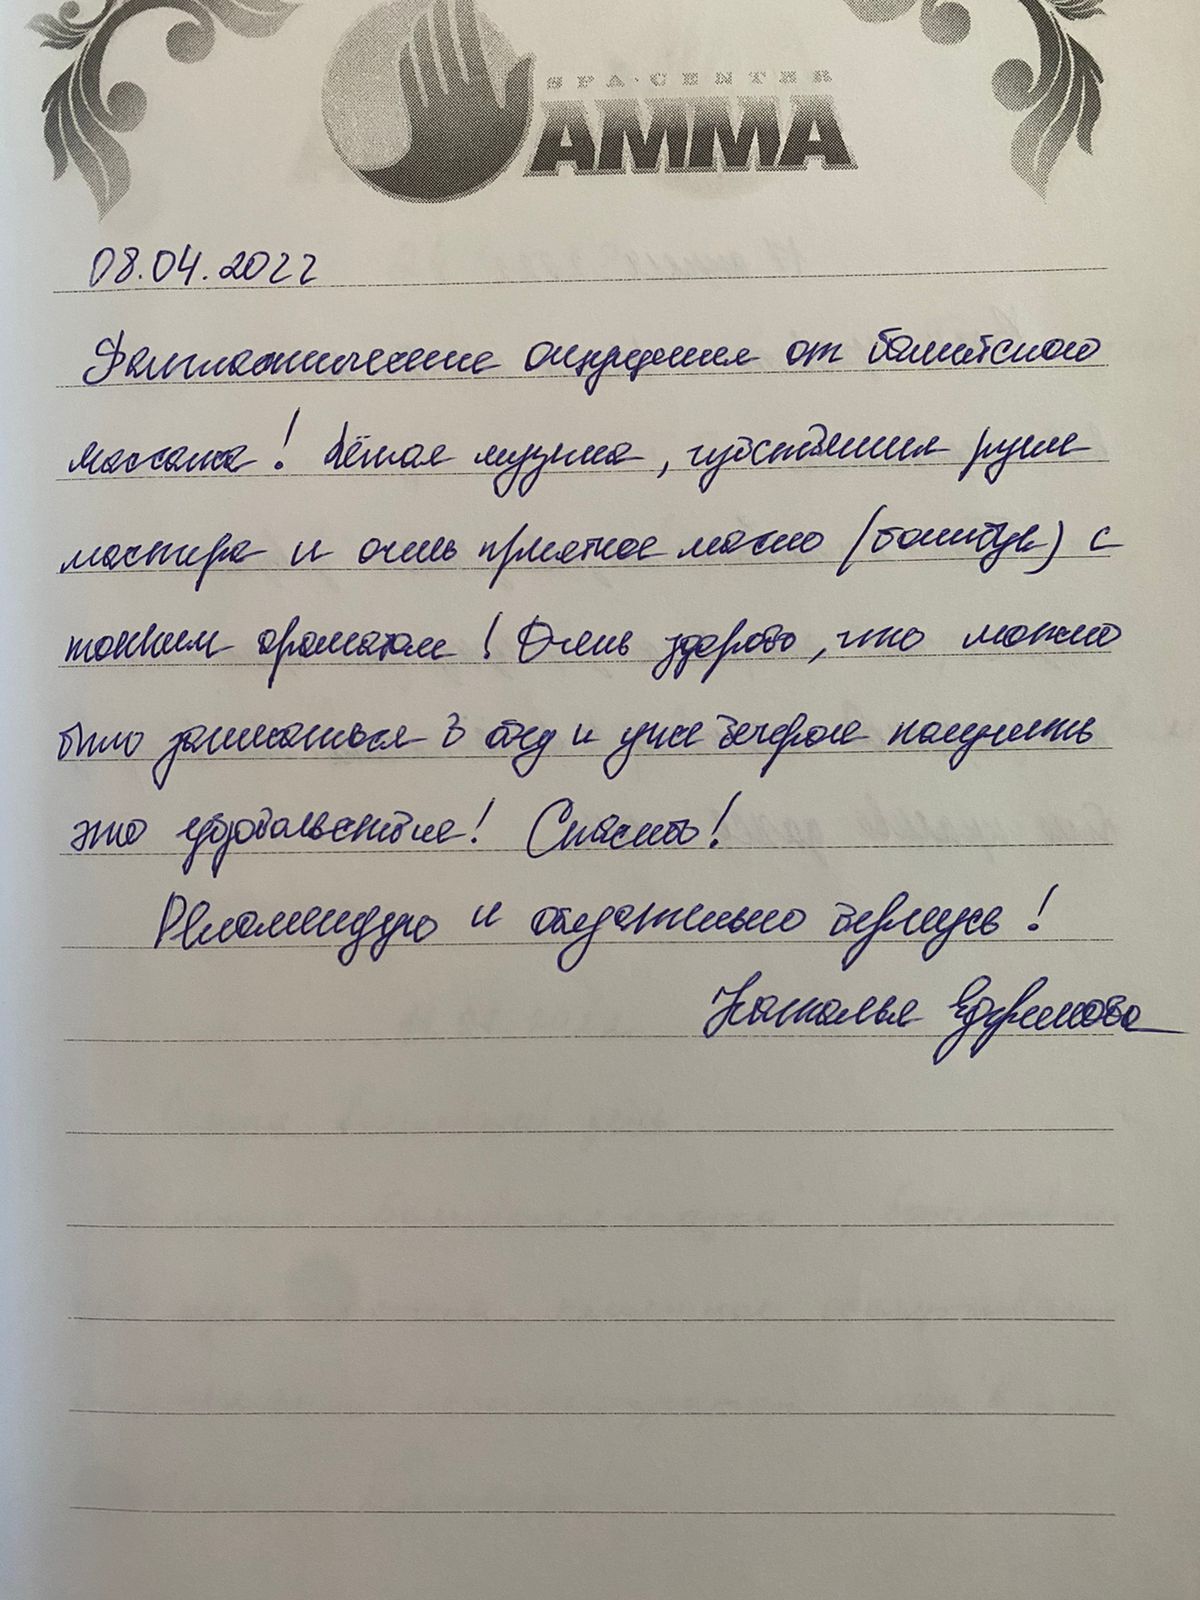 SPA-CENTER
AMMA
08.04.2022
Фантастические ощущения от балийского
массажа! Лёгкая музыка, чувственные руки
мастера и очень приятное масло (бамбук) с
тонким ароматом! Очень здорово, что можно
было записаться в обед и уже вечером получить
это удовольствие! Спасибо!
Рекомендую и обязательно вернусь!
Наталья